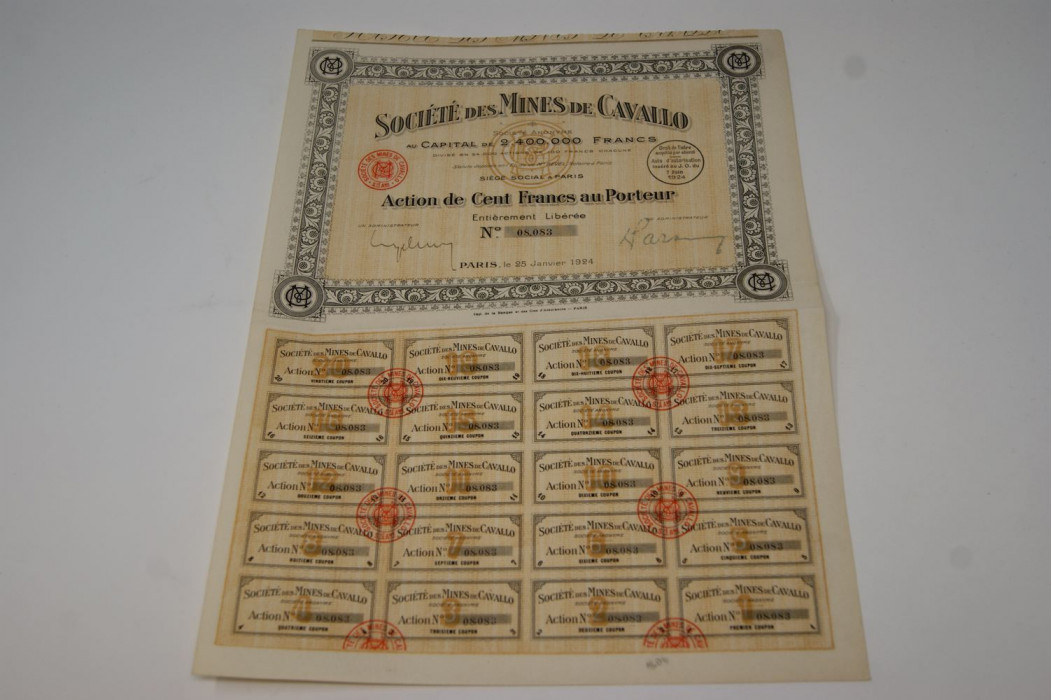 SOCIÉTÉ DES MINES DE CAVALLO
SOCIÉTÉ ANONYME
AU CAPITAL DE 2.400.000 FRANCS
SIÈGE SOCIAL À PARIS
SOCIÉTÉ DES MINES DE CAVALLO
Droit de Timbre
Date d'autorisation
insérée au J. O. du
7 Juin
1924
Action de Cent Francs au Porteur
Entièrement Libérée
Nº 08,083
UN ADMINISTRATEUR
UN ADMINISTRATEUR
PARIS, le 25 Janvier 1924
SOCIÉTÉ DES MINES DE CAVALLO
Action Nº 08,083
VINGTIÈME COUPON
SOCIÉTÉ DES MINES DE CAVALLO
Action Nº 08,083
DIX-NEUVIÈME COUPON
SOCIÉTÉ DES MINES DE CAVALLO
Action Nº 08,083
DIX-HUITIÈME COUPON
SOCIÉTÉ DES MINES DE CAVALLO
Action Nº 08,083
DIX-SEPTIÈME COUPON
SOCIÉTÉ DES MINES DE CAVALLO
Action Nº 08,083
SEIZIÈME COUPON
SOCIÉTÉ DES MINES DE CAVALLO
Action Nº 08,083
QUINZIÈME COUPON
SOCIÉTÉ DES MINES DE CAVALLO
Action Nº 08,083
QUATORZIÈME COUPON
SOCIÉTÉ DES MINES DE CAVALLO
Action Nº 08,083
TREIZIÈME COUPON
SOCIÉTÉ DES MINES DE CAVALLO
Action Nº 08,083
DOUZIÈME COUPON
SOCIÉTÉ DES MINES DE CAVALLO
Action Nº 08,083
ONZIÈME COUPON
SOCIÉTÉ DES MINES DE CAVALLO
Action Nº 08,083
DIXIÈME COUPON
SOCIÉTÉ DES MINES DE CAVALLO
Action Nº 08,083
NEUVIÈME COUPON
SOCIÉTÉ DES MINES DE CAVALLO
Action Nº 08,083
HUITIÈME COUPON
SOCIÉTÉ DES MINES DE CAVALLO
Action Nº 08,083
SEPTIÈME COUPON
SOCIÉTÉ DES MINES DE CAVALLO
Action Nº 08,083
SIXIÈME COUPON
SOCIÉTÉ DES MINES DE CAVALLO
Action Nº 08,083
CINQUIÈME COUPON
SOCIÉTÉ DES MINES DE CAVALLO
Action Nº 08,083
QUATRIÈME COUPON
SOCIÉTÉ DES MINES DE CAVALLO
Action Nº 08,083
TROISIÈME COUPON
SOCIÉTÉ DES MINES DE CAVALLO
Action Nº 08,083
DEUXIÈME COUPON
SOCIÉTÉ DES MINES DE CAVALLO
Action Nº 08,083
PREMIER COUPON